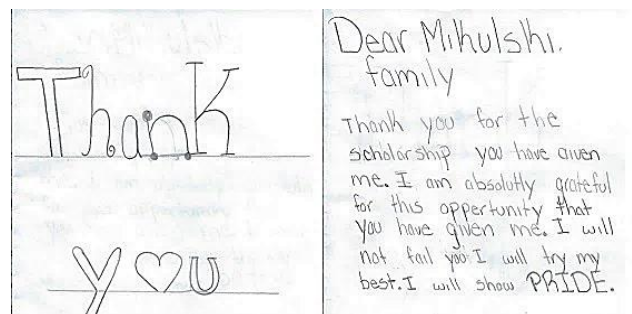 Thank
y♡u
Dear Mikulshi.
family
Thank you for the
scholarship you have given
me. I am absolutly grateful
for this opportunity that
you have given me. I will
not fail you I will try my
best. I will show PRIDE.